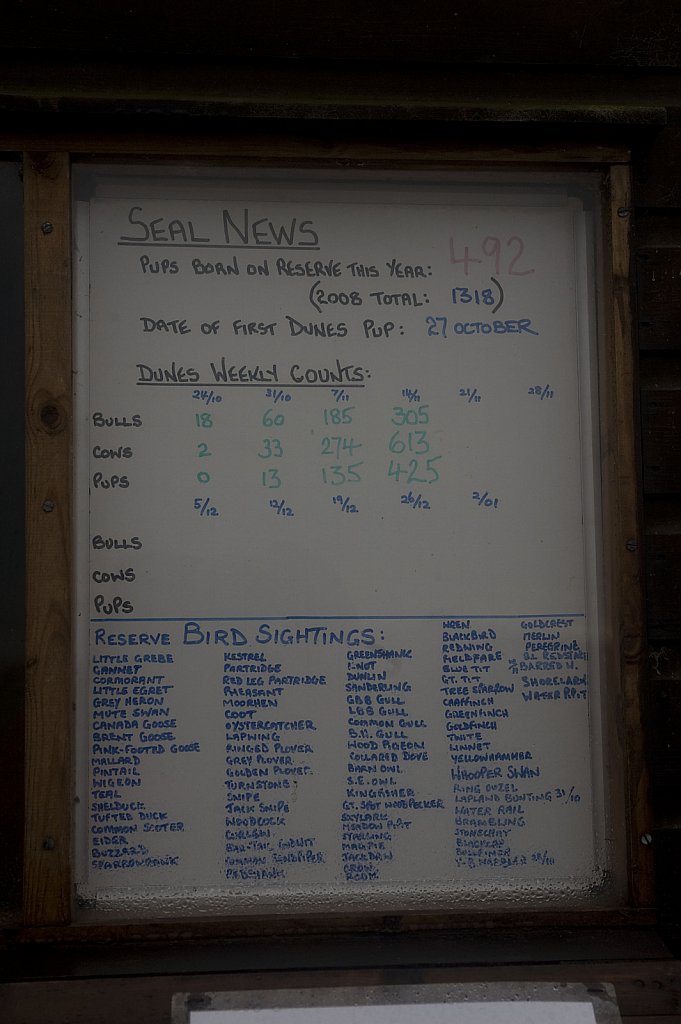 SEAL NEWS
PUPS BORN ON RESERVE THIS YEAR: 492
(2008 TOTAL: 1318)
DATE OF FIRST DUNES PUP: 27 OCTOBER
DUNES WEEKLY COUNTS:
24/10 31/10 7/11 14/11 21/11 28/11
BULLS 18 60 185 305
COWS 2 33 274 613
PUPS 0 13 135 425
5/12 12/12 19/12 26/12 2/01
BULLS
COWS
PUPS
RESERVE BIRD SIGHTINGS:
LITTLE GREBE
GANNET
CORMORANT
LITTLE EGRET
GREY HERON
MUTE SWAN
CANADA GOOSE
BRENT GOOSE
PINK-FOOTED GOOSE
MALLARD
PINTAIL
WIGEON
TEAL
SHELDUCK
TUFTED DUCK
COMMON SCOTER
EIDER
BUZZARD
SPARROWHAWK
KESTREL
PARTRIDGE
RED LEG PARTRIDGE
PHEASANT
MOORHEN
COOT
OYSTERCATCHER
LAPWING
RINGED PLOVER
GREY PLOVER
GOLDEN PLOVER
TURNSTONE
SNIPE
JACK SNIPE
WOODCOCK
CURLEW
BAR-TAIL GODWIT
COMMON SANDPIPER
REDSHANK
GREENSHANK
KNOT
DUNLIN
SANDERLING
GBB GULL
LBB GULL
COMMON GULL
B.H. GULL
WOOD PIGEON
COLLARED DOVE
BARN OWL
S.E. OWL
KINGFISHER
GT. SPOT WOODPECKER
SKYLARK
MEADOW PIPIT
STARLING
MAGPIE
JACKDAW
CROW
ROOK
WREN
BLACKBIRD
REDWING
FIELDFARE
BLUE TIT
GT. TIT
TREE SPARROW
CHAFFINCH
GREENFINCH
GOLDFINCH
TWITE
LINNET
YELLOWHAMMER
WHOOPER SWAN
RING OUZEL
LAPLAND BUNTING 31/10
WATER RAIL
BRAMBLING
STONECHAT
BLACKCAP
BULLFINCH
Y-B WARBLER 28/10
GOLDCREST
MERLIN
PEREGRINE
BL REDSTART
BARRED W.
SHORELARK
WATER PIPIT